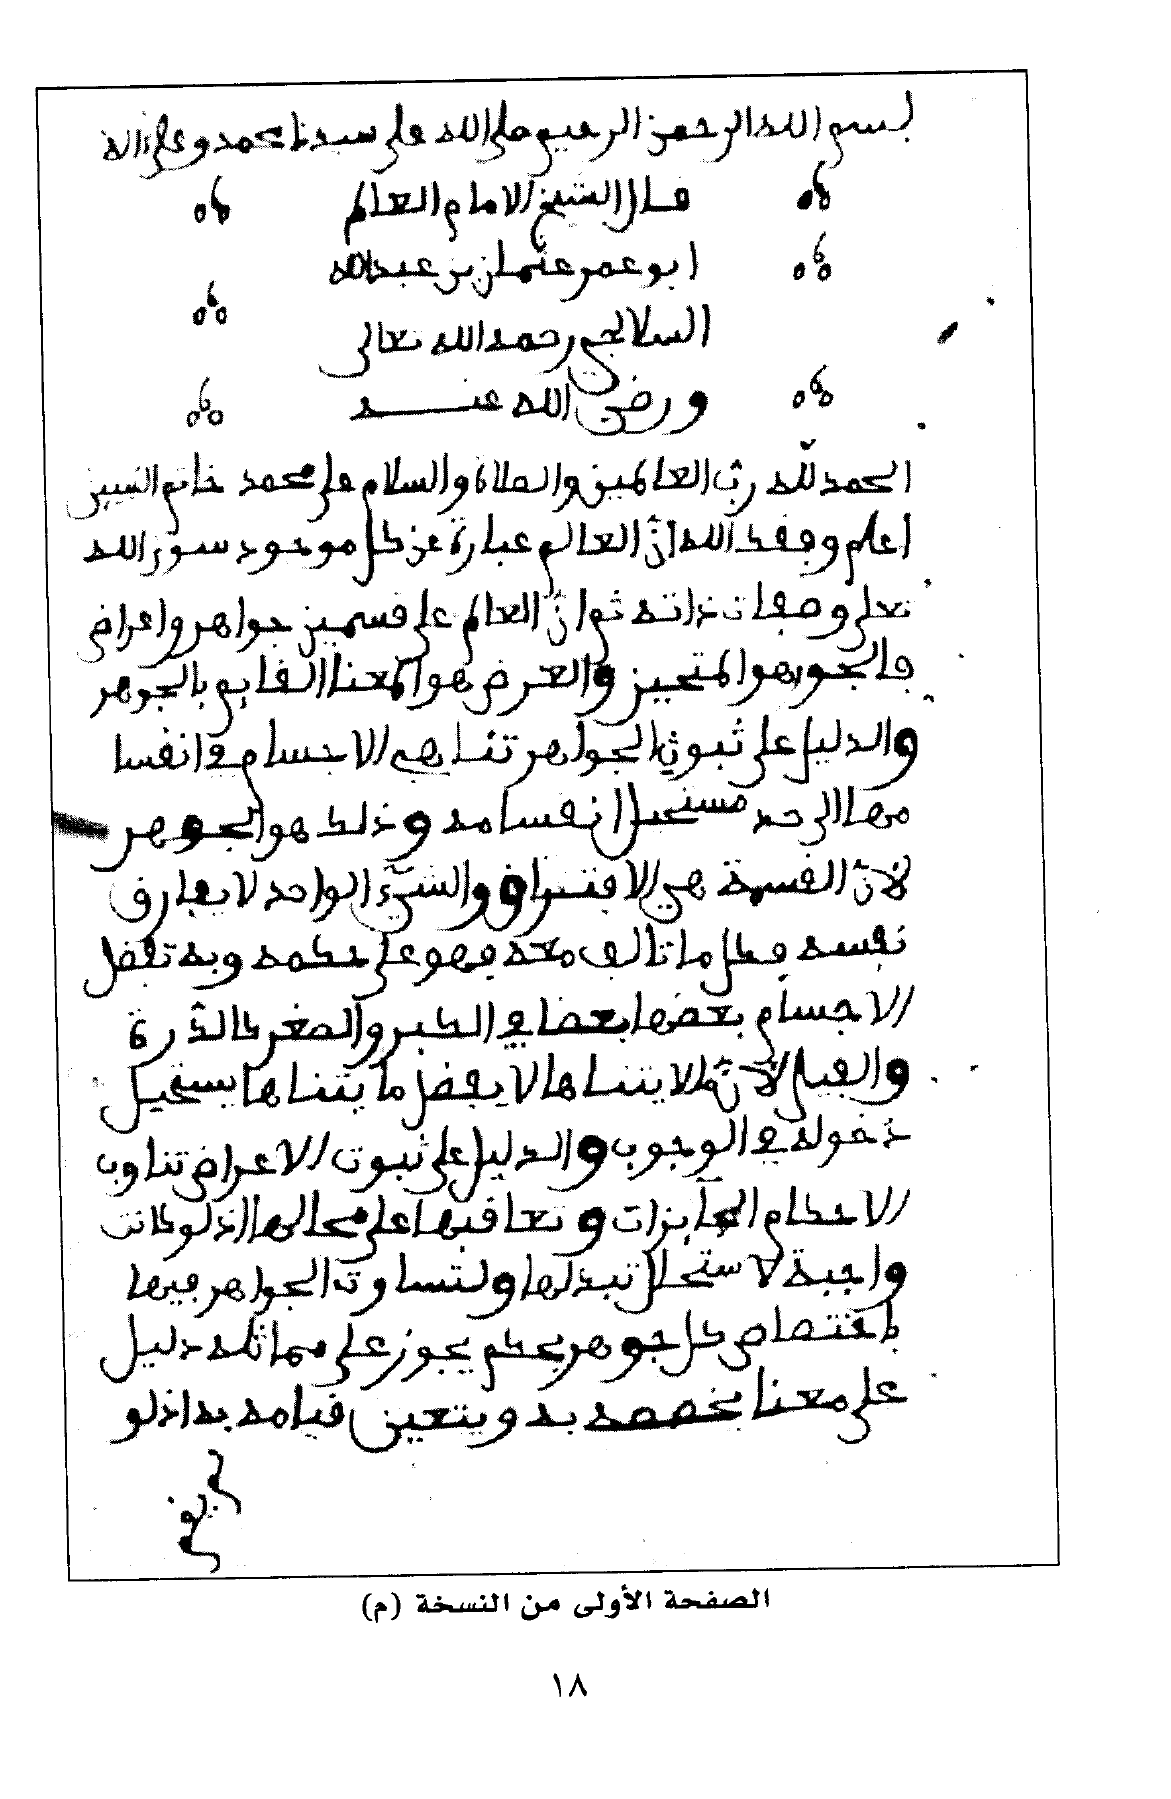 بسم الله الرحمن الرحيم صلى الله على سيدنا محمد وعلى ءاله
قال الشيخ الامام العالم
ابو عمر عثمان بن عبد الله
السلالجي رحمه الله تعالى
ورضي الله عنه
الحمد للّه ربّ العالمين والصلاة والسلام على محمد خاتم النبيين
اعلم وفقك الله انّ العالم عبارة عن كل موجود سوى الله
تعلى وصفات ذاته ثم انّ العالم على قسمين جواهر واعراض
فالجوهر هو المتحيز والعرض هو المعنا القايم بالجوهر
والدليل على ثبوث الجواهر تناهي الاجسام في انفسا
مها الى حد مستحيل انفسامه وذلك هو الجوهر
لانّ القسمة هي الافتراق والشيء الواحد لا يفارق
نفسه فكل ما تالف معه فهو على حكمه وبه تفضل
الاجسام بعضها بعضا في الكبر والصغر كالذّرة
والفيل لانّ ما لا يتناها لا يفضل ما يتناها يستحيل
دخوله في الوجوب والدليل على ثبوت الاعراض تناوب
الاحكام الجآيزات وتعاقبها على محالها اذ لو كانت
واجبة لاستحال تبدلها ولتساوت الجواهر فيها
فاختصاص كل جوهر بحكم يجوز على مماثله دليل
على معنا يخصصه به ويتعين قيامه به اذ لو
الصفحة الأولى من النسخة (م)
١٨